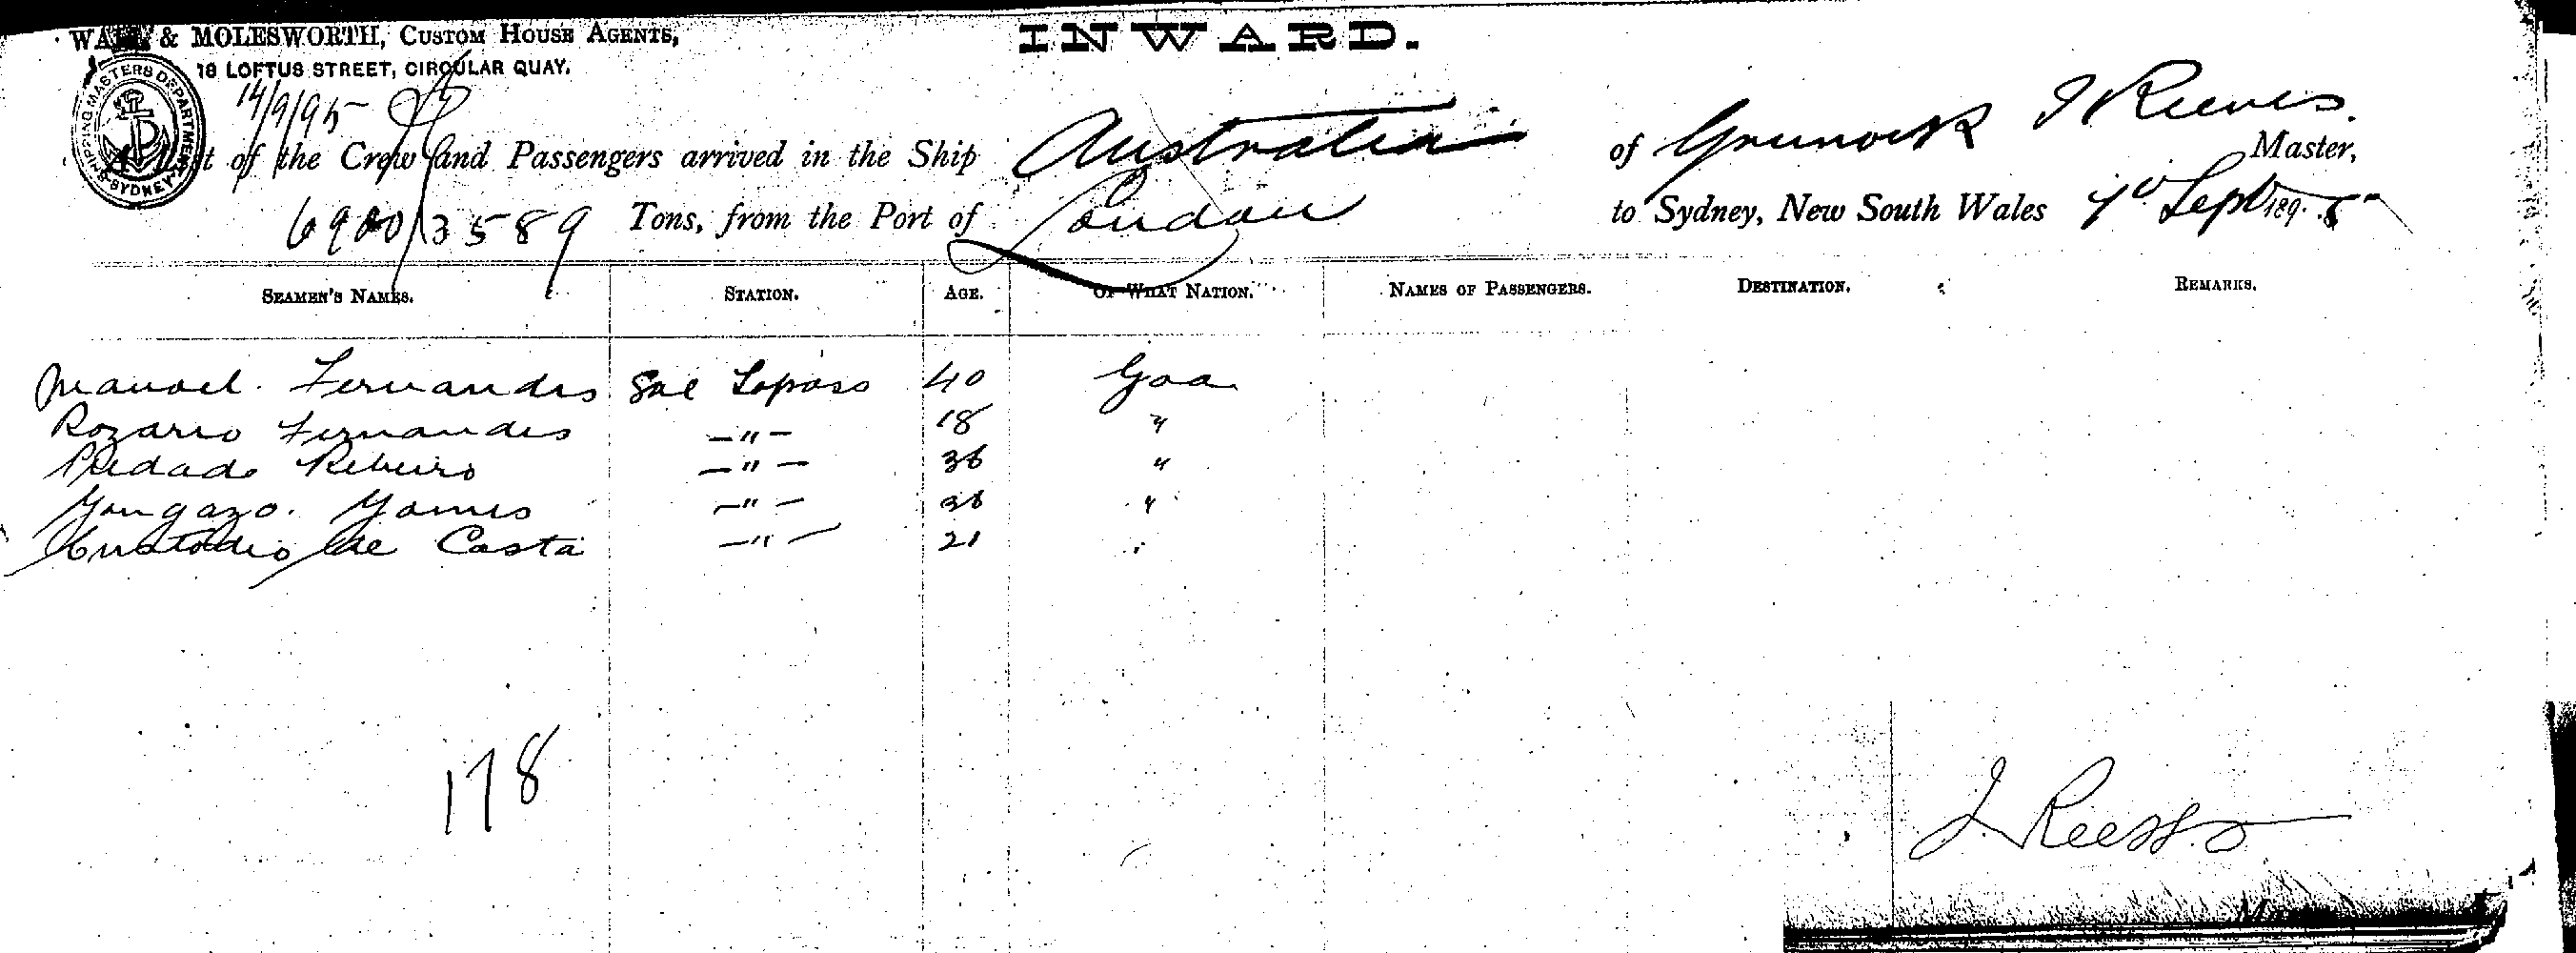 & MOLESWORTH, CUSTOM HOUSE AGENTS,
18 LOFTUS STREET, CIRCULAR QUAY.
INWARD.
SHIPPING MASTERS DEPARTMENT SYDNEY
14/9/95
of the Crew and Passengers arrived in the Ship Australia of Greenock J Reeves Master,
6900/3589 Tons, from the Port of London to Sydney, New South Wales Sept 1895
SEAMEN'S NAMES. STATION. AGE. OF WHAT NATION. NAMES OF PASSENGERS. DESTINATION. REMARKS.
Manoel Fernandes 40 Goa
Rozario Fernandes —"— 18 "
Piedade Ribeiro —"— 36 "
Gomes —"— "
Custodio de Costa —"— 21 "
178
J. Reeves